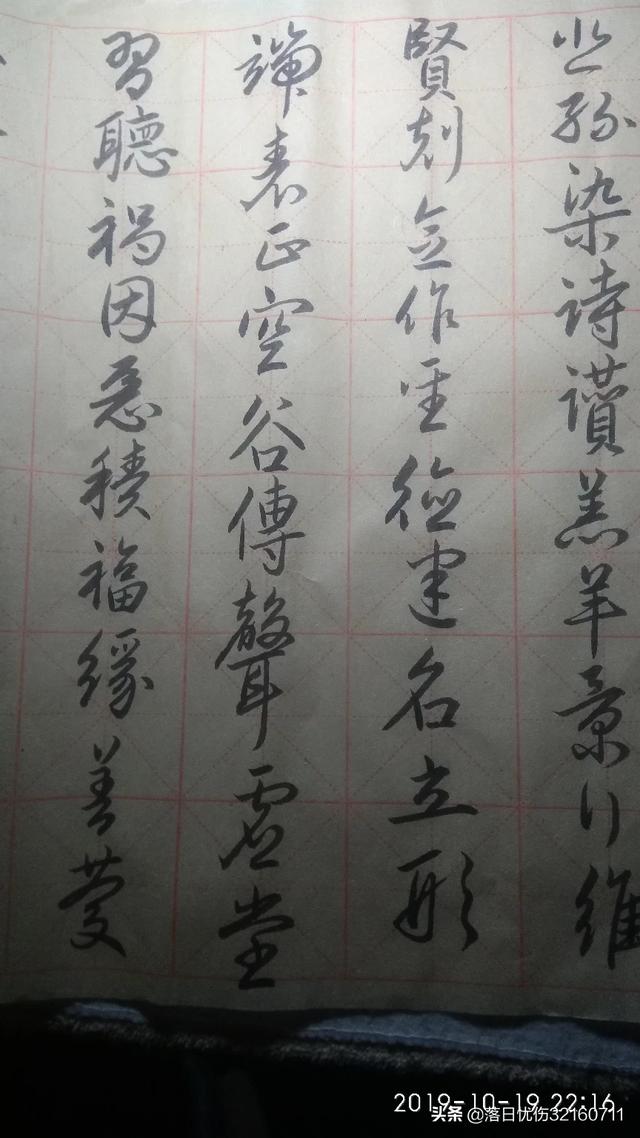 悲絲染詩讚羔羊景行維
賢剋念作聖德建名立形
端表正空谷傳聲虛堂
習聽禍因惡積福緣善慶
2019-10-19 22:16
头条 @落日忧伤32160711